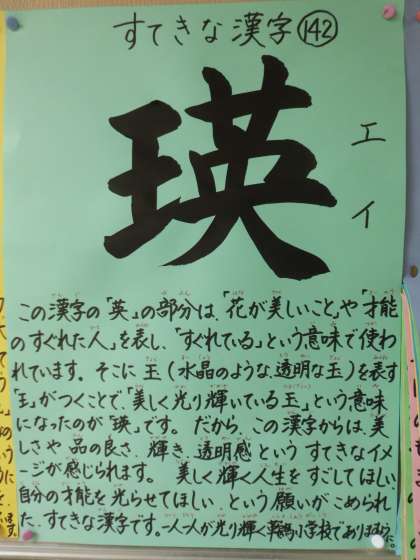 すてきな漢字142
瑛
エイ
この漢字の「英」の部分は、「花が美しいこと」や「才能
のすぐれた人」を表し、「すぐれている」という意味で使わ
れています。そこに玉(水晶のような透明な玉)を表す
「王」がつくことで、「美しく光り輝いている玉」という意味
になったのが「瑛」です。だから、この漢字からは、美
しさや品の良さ、輝き、透明感というすてきなイメ
ージが感じられます。美しく輝く人生をすごしてほしい、
自分の才能を光らせてほしい、という願いがこめられ
た、すてきな漢字です。一人一人が光り輝く小学校であります